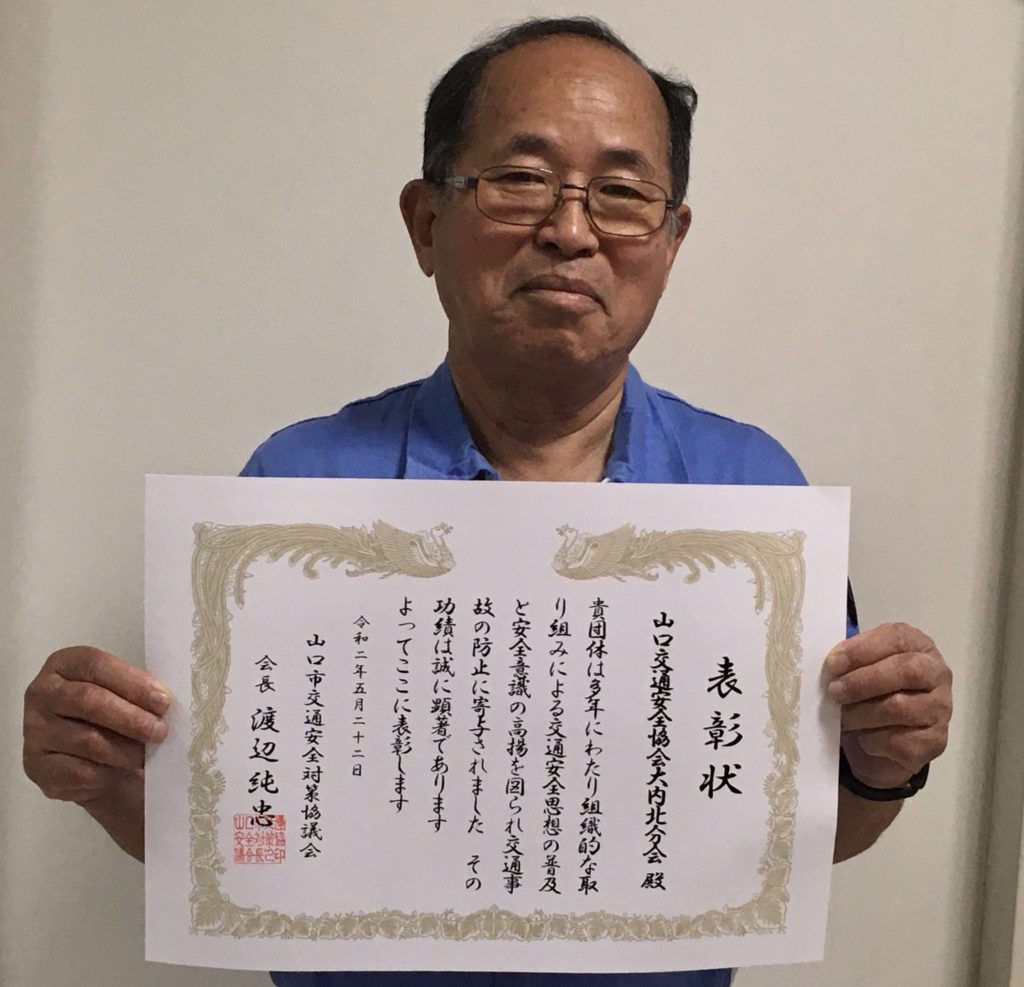 表彰状
山口交通安全協会大内北分会 殿
貴団体は多年にわたり組織的な取
り組みによる交通安全思想の普及
と安全意識の高揚を図られ交通事
故の防止に寄与されました その
功績は誠に顕著であります
よってここに表彰します
令和二年五月二十二日
山口市交通安全対策協議会
会長 渡辺純忠